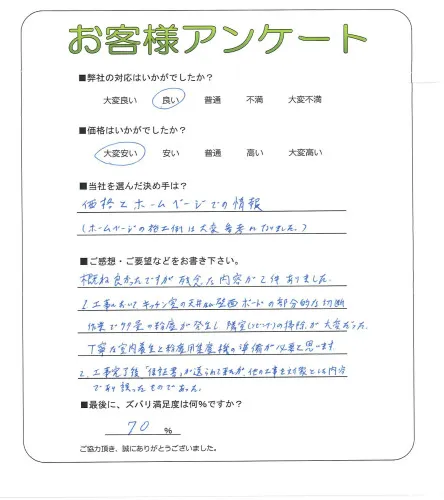 お客様アンケート
■弊社の対応はいかがでしたか？
大変良い 良い 普通 不満 大変不満
■価格はいかがでしたか？
大変安い 安い 普通 高い 大変高い
■当社を選んだ決め手は？
価格とホームページでの情報
(ホームページの施工例は大変参考になりました。)
■ご感想・ご要望などをお書き下さい。
概ね良かったですが残念な内容が2件ありました。
1.工事においてキッチン室の天井and壁面ボードの部分的な切断
作業で多量の粉塵が発生し隣室(リビング)の掃除が大変だった。
丁寧な室内養生と粉塵用集塵機の準備が必要と思います
2.工事完了後「保証書」が送られてきたが、他の工事を対象とした内容
であり誤ったものであった。
■最後に、ズバリ満足度は何%ですか？
70 %
ご協力頂き、誠にありがとうございました。